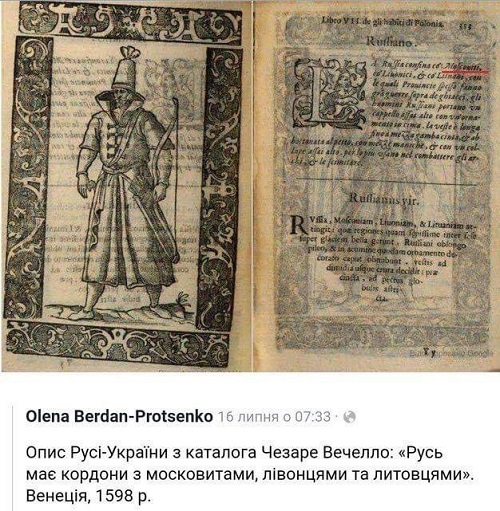 Libro VII. de gli habiti di Polonia.
Russiano.
LA Russia confina cō Moscouiti,
cō Liuonici, & cō Lituani, con
le quali Prouincie spesso fanno
grā guerre sopra de ghiacci, gli
huomini Russiani portano vn
cappello assai alto con vn'orna-
mento in cima. la veste è longa
fino a mezza gamba cinta, & ab-
bottonata al petto, con mezze maniche, & con vn col-
lare assai alto, per lo più vsano nel combattere gli ar-
chi, & le scimitare.
Russianus vir.
RVssia, Moscouiam, Liuoniam, & Lituaniam at-
tingit: quæ regiones quam sæpissime inter se
super glaciem bella gerunt. Russiani oblongo
pileo, & in acumine quodam ornamento de-
corato caput obnubunt. vestis ad
dimidia usque crura decidit: præ
cincta, ad pectus glo-
bulis astri-
cta.
Olena Berdan-Protsenko 16 липня о 07:33 ·
Опис Русі-України з каталога Чезаре Вечелло: «Русь
має кордони з московитами, лівонцями та литовцями».
Венеція, 1598 р.